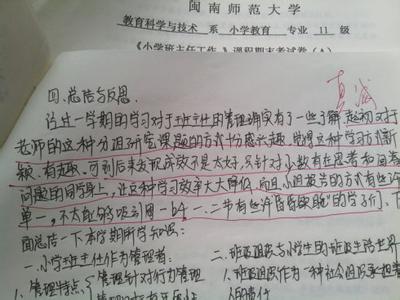 闽南师范大学
教育科学与技术 系 小学教育 专业 11 级
《小学班主任工作》课程期末考试卷(A)
真诚
四、总结与反思
经过一学期的学习对于班主任的管理确实有一些了解,起初对于
老师的这种分组研究课题的方式十分感兴趣,觉得这种学习方式新
颖、有趣,可到后来发现成效不是太好,只针对小数有在思考和回答
问题的同学身上,让这种学习效率大大降低,而且小组报告的方式有些许
单一,不太能够吸引同一些一二节有些许昏昏欲睡"的学子们、下
面总结一下本学期所学知识:
一、小学班主任作为管理者:
1、管理特点 管理针对行为管理
二、班级组织与小学生的班级生活世界
1、班级组织作为一种社会组织承担着